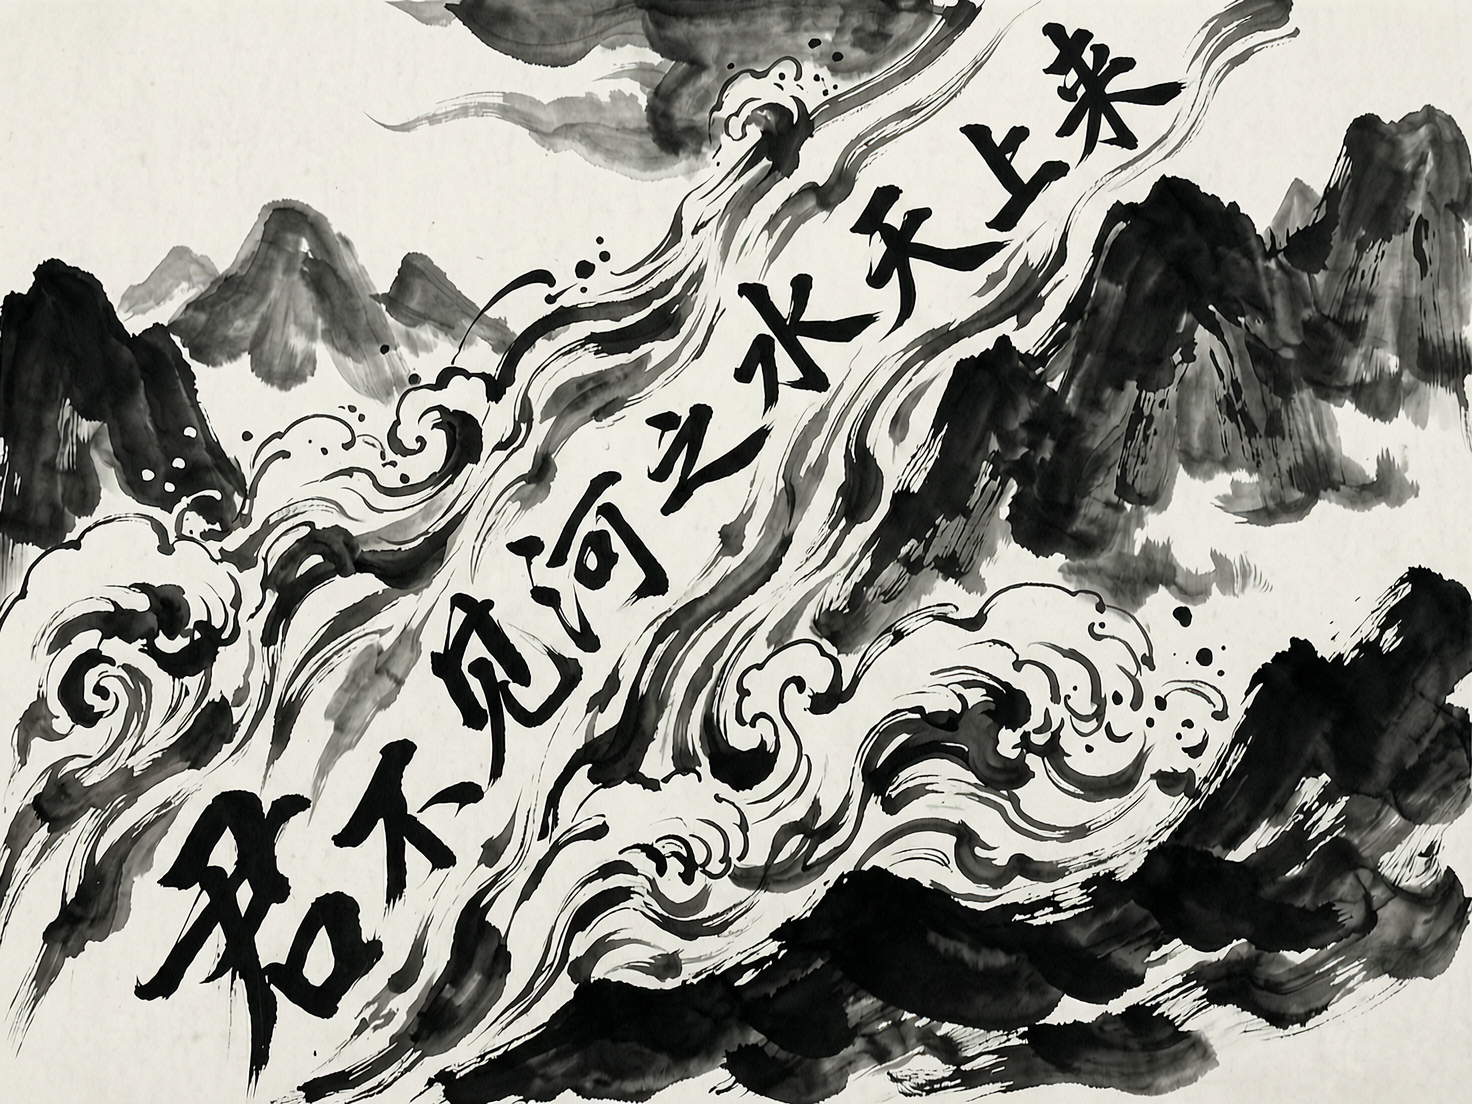 君不见河之水天上来